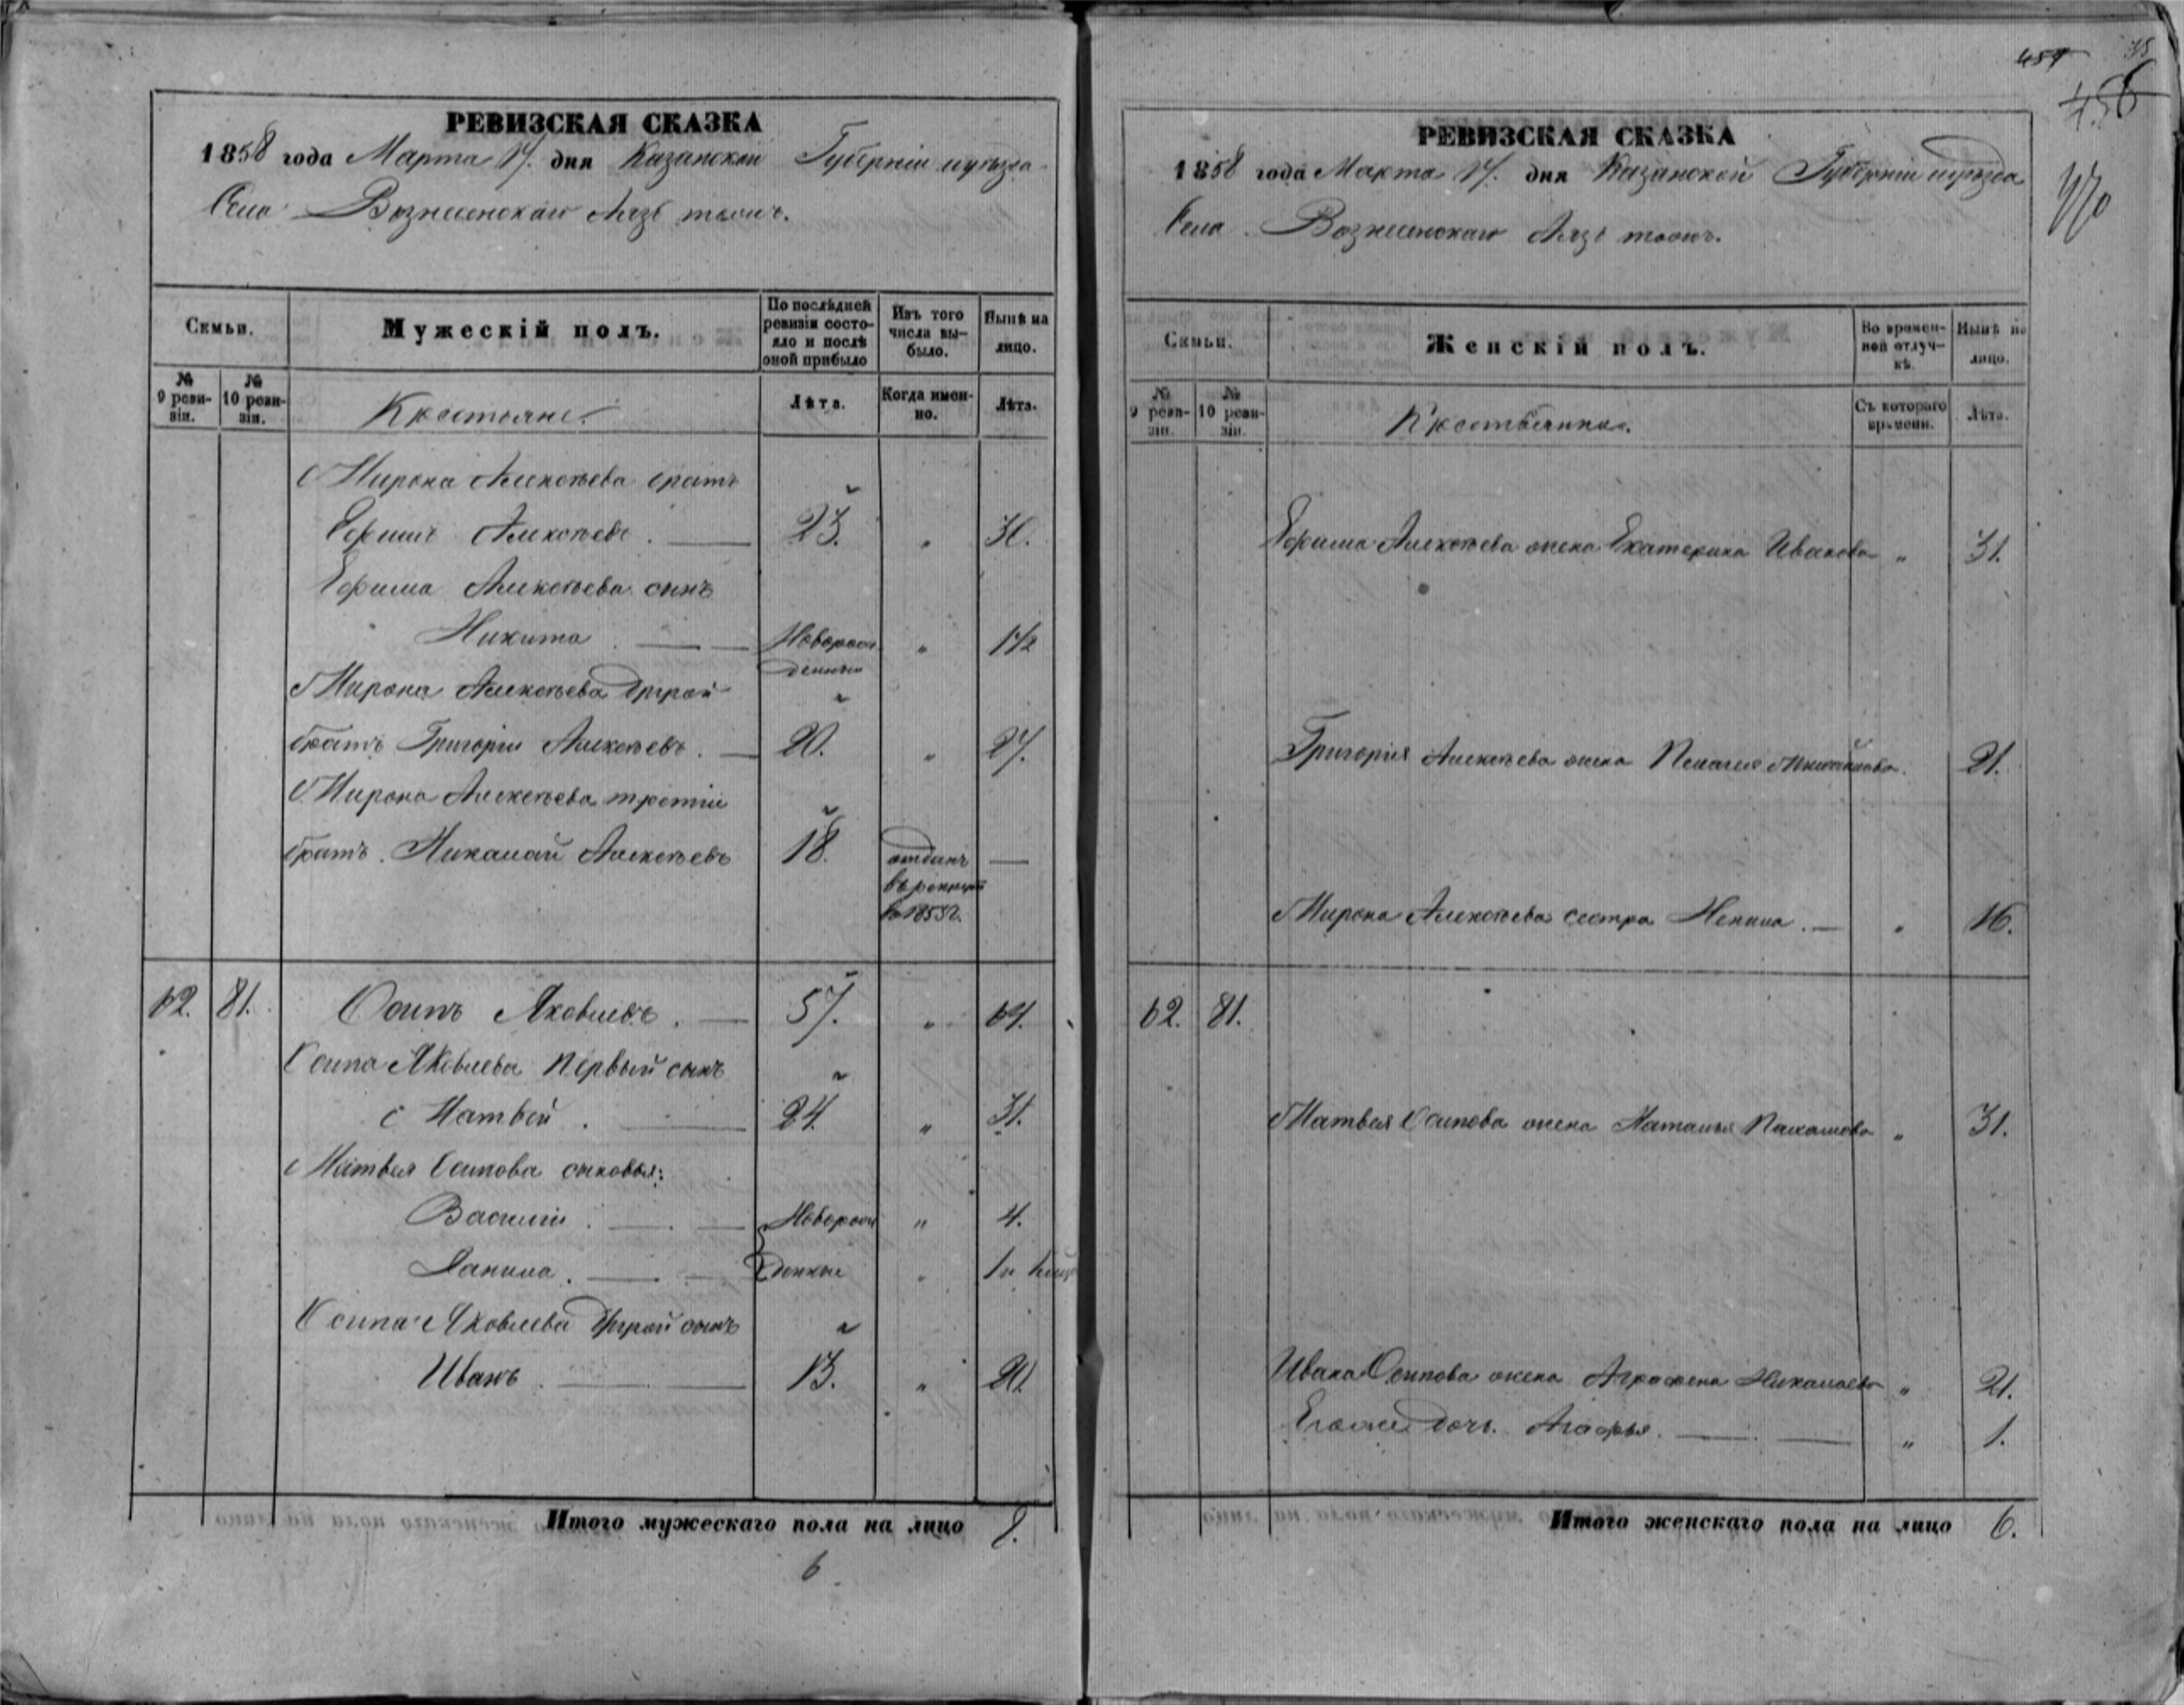 РЕВИЗСКАЯ СКАЗКА
1858 года Марта 17. дня Казанской Губерніи и уѣзда
Села Вознесенскаго
Семьи.
Мужескій полъ.
По послѣдней ревизіи состояло и послѣ оной прибыло
Изъ того числа выбыло.
Нынѣ на лицо.
№ 9 ревизіи.
№ 10 ревизіи.
Крестьяне.
Лѣта.
Когда именно.
Лѣта.
Мирона Алексѣева братъ
Ефимъ Алексѣевъ. 23. " 30.
Ефима Алексѣева сынъ
Никита Новорожденный " 1 1/2
Мирона Алексѣева другой
братъ Григорій Алексѣевъ. 20. " 27.
Мирона Алексѣева третій
братъ. Николай Алексѣевъ 18. отданъ —
въ рекруты
въ 1855 г.
62. 81. Осипъ Яковлевъ. 57. " 64.
Осипа Яковлева первый сынъ
Матвей. 24. " 31.
Матвея Осипова сыновья:
Василій. Новорож " 4.
Данила. денные " 1 н
Осипа Яковлева другой сынъ
Иванъ. 13. " 20.
Итого мужескаго пола на лицо 8.
6
457
456
470
РЕВИЗСКАЯ СКАЗКА
1858 года Марта 17. дня Казанской Губерніи и уѣзда
Села Вознесенскаго
Семьи.
Женскій полъ.
Во временной отлучкѣ.
Нынѣ на лицо.
№ 9 ревизіи.
№ 10 ревизіи.
Крестьянки.
Съ котораго времени.
Лѣта.
Ефима Алексѣева жена Екатерина Иванова " 31.
Григорія Алексѣева жена Пелагея Михайлова. 21.
Мирона Алексѣева сестра Ненила. " 16.
62. 81.
Матвея Осипова жена Наталья " 31.
Ивана Осипова жена Аграфена Николаева " 21.
Его же дочь Агафья. " 1.
Итого женскаго пола на лицо 6.